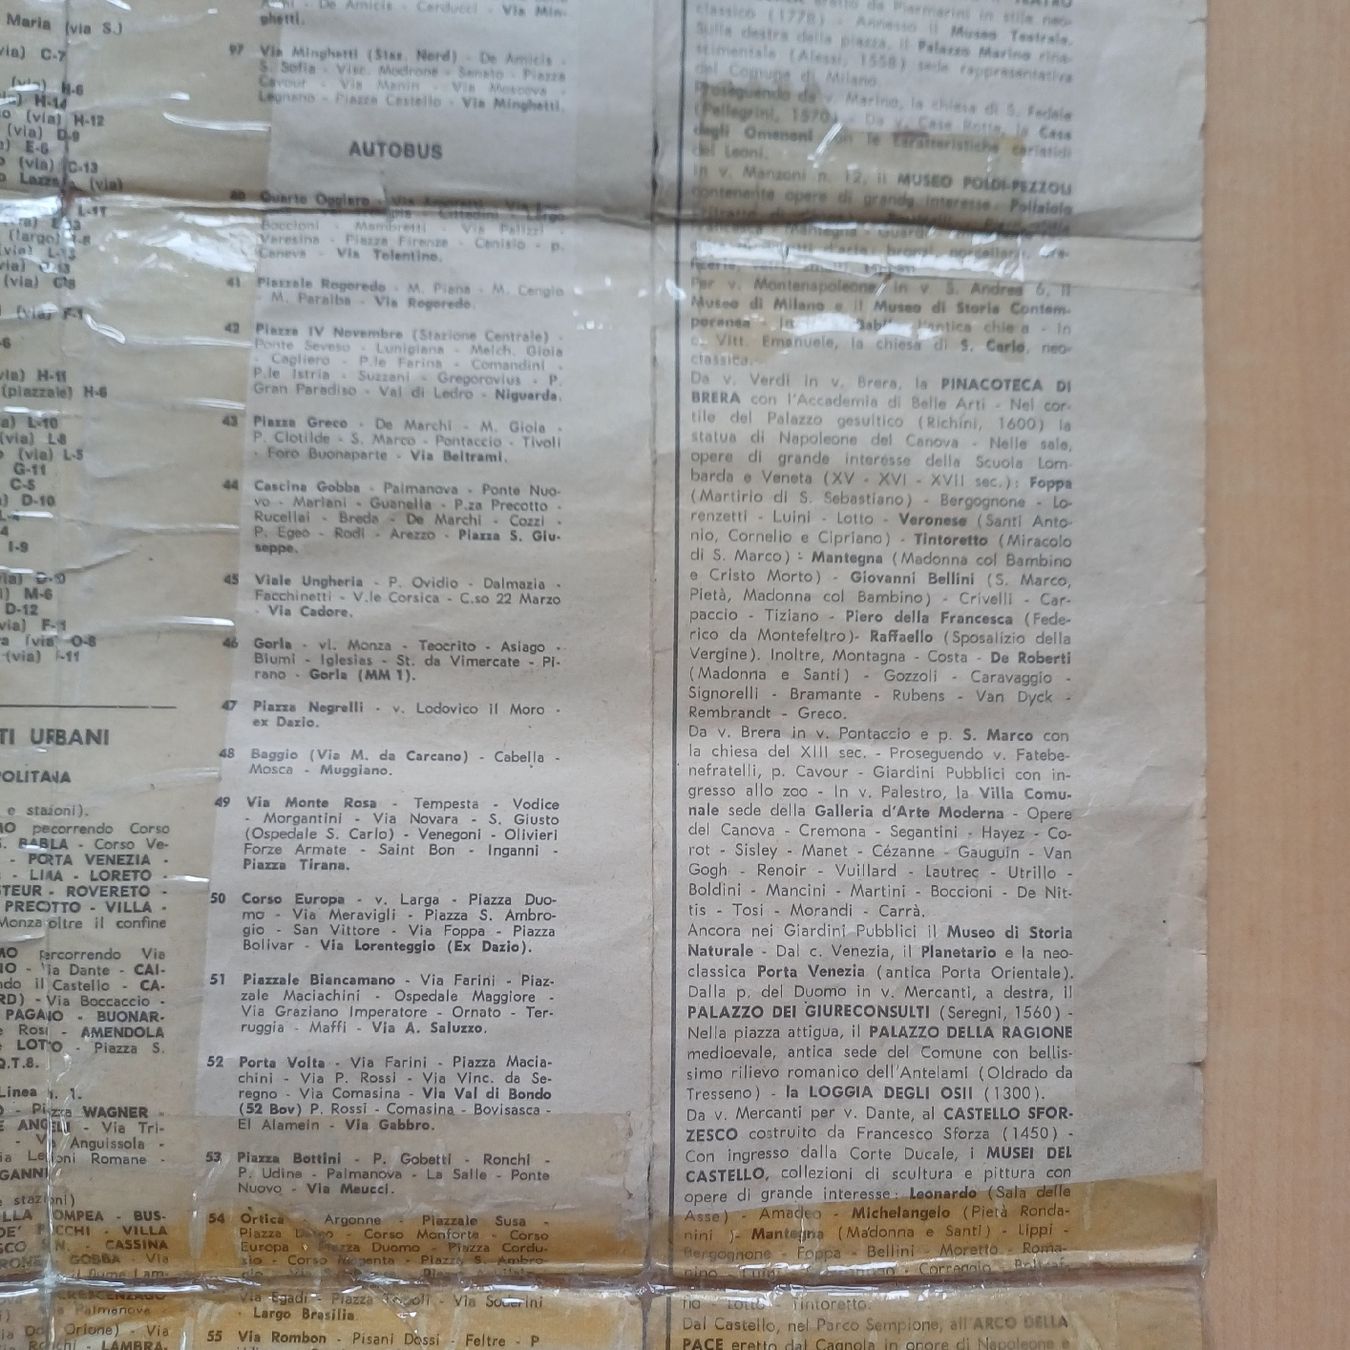 Maria (via S.)
via) C-7
(via) H-6
H-14
(via) H-12
(via) D-9
E-6
(via) C-13
Lazza (via)
L-11
(largo)
via) L-13
(via) F-1
-6
via) H-11
(piazzale) H-6
L-10
(via) L-8
(via) L-5
G-11
C-5
D-10
L-4
I-9
M-6
D-12
via) F-1
(via) O-8
(via) I-11
TI URBANI
POLITANA
e stazioni).
MO percorrendo Corso
BABILA - Corso Ve-
- PORTA VENEZIA -
- LIMA - LORETO -
STEUR - ROVERETO -
PRECOTTO - VILLA -
Monza oltre il confine
MO percorrendo Via
- Via Dante - CAI-
ndo il Castello - CA-
RD) - Via Boccaccio -
PAGANO - BUONAR-
Rosi - AMENDOLA
LOTTO - Piazza S.
Q.T.8.
Linea n. 1.
- Piazza WAGNER -
DE ANGELI - Via Tri-
- Via Anguissola -
Legioni Romane -
e stazioni)
POMPEA - BUS-
VILLA
CASSINA
GOBBA - Via
CRESCENZAGO
Palmanova -
Orione) - Via
- LAMBRA-
- De Amicis - Carducci - Via Min-
ghetti.
97 Via Minghetti (Staz. Nord) - De Amicis -
S. Sofia - Visc. Modrone - Senato - Piazza
Cavour - Via Manin - Via Moscova -
Legnano - Piazza Castello - Via Minghetti.
AUTOBUS
40 Quarto Oggiaro - Via Amoretti -
Cittadini - Largo
Boccioni - Mambretti - Via Palizzi -
Varesina - Piazza Firenze - Cenisio - p.
Caneva - Via Tolentino.
41 Piazzale Rogoredo - M. Piana - M. Cengio
- M. Paralba - Via Rogoredo.
42 Piazza IV Novembre (Stazione Centrale) -
Ponte Seveso - Lunigiana - Melch. Gioia
- Cagliero - P.le Farina - Comandini -
P.le Istria - Suzzani - Gregorovius - P.
Gran Paradiso - Val di Ledro - Niguarda.
43 Piazza Greco - De Marchi - M. Gioia -
P. Clotilde - S. Marco - Pontaccio - Tivoli
- Foro Buonaparte - Via Beltrami.
44 Cascina Gobba - Palmanova - Ponte Nuo-
vo - Mariani - Guanella - P.za Precotto -
Rucellai - Breda - De Marchi - Cozzi -
P. Egeo - Rodi - Arezzo - Piazza S. Giu-
seppe.
45 Viale Ungheria - P. Ovidio - Dalmazia -
Facchinetti - V.le Corsica - C.so 22 Marzo
- Via Cadore.
46 Gorla - vl. Monza - Teocrito - Asiago -
Biumi - Iglesias - St. da Vimercate - Pi-
rano - Gorla (MM 1).
47 Piazza Negrelli - v. Lodovico il Moro -
ex Dazio.
48 Baggio (Via M. da Carcano) - Cabella -
Mosca - Muggiano.
49 Via Monte Rosa - Tempesta - Vodice
- Morgantini - Via Novara - S. Giusto
(Ospedale S. Carlo) - Venegoni - Olivieri
Forze Armate - Saint Bon - Inganni -
Piazza Tirana.
50 Corso Europa - v. Larga - Piazza Duo-
mo - Via Meravigli - Piazza S. Ambro-
gio - San Vittore - Via Foppa - Piazza
Bolivar - Via Lorenteggio (Ex Dazio).
51 Piazzale Biancamano - Via Farini - Piaz-
zale Maciachini - Ospedale Maggiore -
Via Graziano Imperatore - Ornato - Ter-
ruggia - Maffi - Via A. Saluzzo.
52 Porta Volta - Via Farini - Piazza Macia-
chini - Via P. Rossi - Via Vinc. da Se-
regno - Via Comasina - Via Val di Bondo
(52 Bov) P. Rossi - Comasina - Bovisasca -
El Alamein - Via Gabbro.
53 Piazza Bottini - P. Gobetti - Ronchi -
P. Udine - Palmanova - La Salle - Ponte
Nuovo - Via Meucci.
54 Ortica - Argonne - Piazzale Susa -
Piazza - Corso Monforte - Corso
Europa - Piazza Duomo - Piazza Cordu-
sio - Corso Magenta - Piazza S. Ambro-
Via Egadi - Piazza Tripoli - Via Soderini
- Largo Brasilia
55 Via Rombon - Pisani Dossi - Feltre - P
eretto da Piermarini in stile neo-
classico (1778) - Annesso il Museo Teatrale.
Sulla destra della piazza, il Palazzo Marino rina-
scimentale (Alessi, 1558) sede rappresentativa
del Comune di Milano.
Proseguendo da v. Marino, la chiesa di S. Fedele
(Pellegrini, 1570) - Da v. Case Rotte, la Casa
degli Omenoni con le caratteristiche cariatidi
del Leoni.
In v. Manzoni n. 12, il MUSEO POLDI-PEZZOLI
contenente opere di grande interesse: Pollaiolo
Per v. Montenapoleone, in v. S. Andrea 6, il
Museo di Milano e il Museo di Storia Contem-
poranea - In l'antica chiesa - In
c. Vitt. Emanuele, la chiesa di S. Carlo, neo-
classica.
Da v. Verdi in v. Brera, la PINACOTECA DI
BRERA con l'Accademia di Belle Arti - Nel cor-
tile del Palazzo gesuitico (Richini, 1600) la
statua di Napoleone del Canova - Nelle sale,
opere di grande interesse della Scuola Lom-
barda e Veneta (XV - XVI - XVII sec.): Foppa
(Martirio di S. Sebastiano) - Bergognone - Lo-
renzetti - Luini - Lotto - Veronese (Santi Anto-
nio, Cornelio e Cipriano) - Tintoretto (Miracolo
di S. Marco) - Mantegna (Madonna col Bambino
e Cristo Morto) - Giovanni Bellini (S. Marco,
Pietà, Madonna col Bambino) - Crivelli - Car-
paccio - Tiziano - Piero della Francesca (Fede-
rico da Montefeltro)- Raffaello (Sposalizio della
Vergine). Inoltre, Montagna - Costa - De Roberti
(Madonna e Santi) - Gozzoli - Caravaggio -
Signorelli - Bramante - Rubens - Van Dyck -
Rembrandt - Greco.
Da v. Brera in v. Pontaccio e p. S. Marco con
la chiesa del XIII sec. - Proseguendo v. Fatebe-
nefratelli, p. Cavour - Giardini Pubblici con in-
gresso allo zoo - In v. Palestro, la Villa Comu-
nale sede della Galleria d'Arte Moderna - Opere
del Canova - Cremona - Segantini - Hayez - Co-
rot - Sisley - Manet - Cézanne - Gauguin - Van
Gogh - Renoir - Vuillard - Lautrec - Utrillo -
Boldini - Mancini - Martini - Boccioni - De Nit-
tis - Tosi - Morandi - Carrà.
Ancora nei Giardini Pubblici il Museo di Storia
Naturale - Dal c. Venezia, il Planetario e la neo-
classica Porta Venezia (antica Porta Orientale).
Dalla p. del Duomo in v. Mercanti, a destra, il
PALAZZO DEI GIURECONSULTI (Seregni, 1560) -
Nella piazza attigua, il PALAZZO DELLA RAGIONE
medioevale, antica sede del Comune con bellis-
simo rilievo romanico dell'Antelami (Oldrado da
Tresseno) - la LOGGIA DEGLI OSII (1300).
Da v. Mercanti per v. Dante, al CASTELLO SFOR-
ZESCO costruito da Francesco Sforza (1450) -
Con ingresso dalla Corte Ducale, i MUSEI DEL
CASTELLO, collezioni di scultura e pittura con
opere di grande interesse: Leonardo (Sala delle
Asse) - Amadeo - Michelangelo (Pietà Ronda-
nini )- Mantegna (Madonna e Santi) - Lippi -
Bergognone - Foppa - Bellini - Moretto - Roma-
nino - Correggio
rio - Lotto - Tintoretto.
Dal Castello, nel Parco Sempione, all'ARCO DELLA
PACE eretto dal Cagnola in onore di Napoleone e